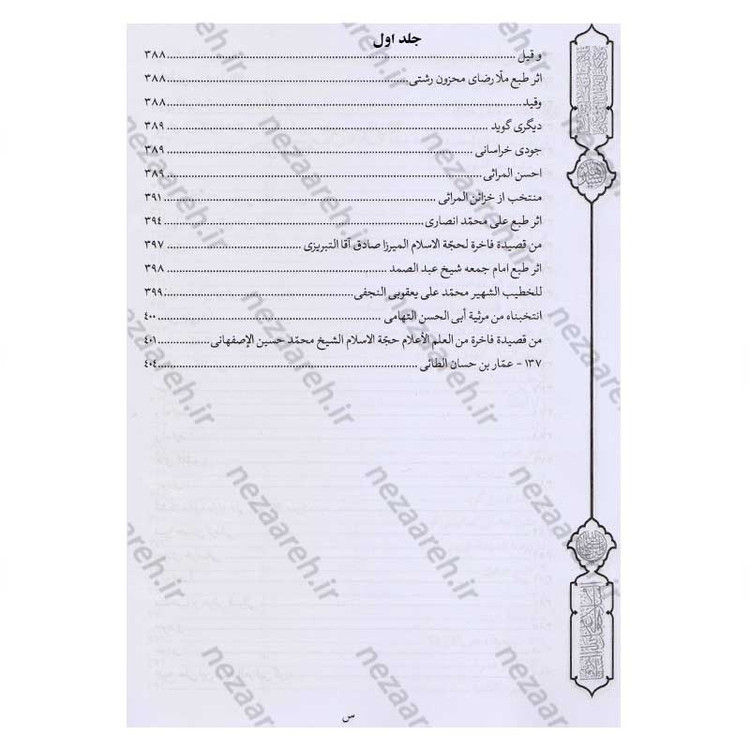 جلد اول
و قیل ........ ۳۸۸
اثر طبع ملّا رضای محزون رشتی ........ ۳۸۸
وقید ........ ۳۸۸
دیگری گوید ........ ۳۸۹
جودی خراسانی ........ ۳۸۹
احسن المراثی ........ ۳۸۹
منتخب از خزائن المراثی ........ ۳۹۱
اثر طبع علی محمّد انصاری ........ ۳۹٤
من قصیدة فاخرة لحجّة الاسلام المیرزا صادق آقا التبریزی ........ ۳۹۷
اثر طبع امام جمعه شیخ عبد الصمد ........ ۳۹۸
للخطیب الشهیر محمّد علی یعقوبی النجفی ........ ۳۹۹
انتخبناه من مرثیة أبی الحسن التهامی ........ ٤۰۰
من قصیدة فاخرة من العلم الأعلام حجّة الاسلام الشیخ محمّد حسین الإصفهانی ........ ٤۰۱
۱۳۷ - عمّار بن حسان الطائی ........ ٤۰٤
س
nezaareh.ir